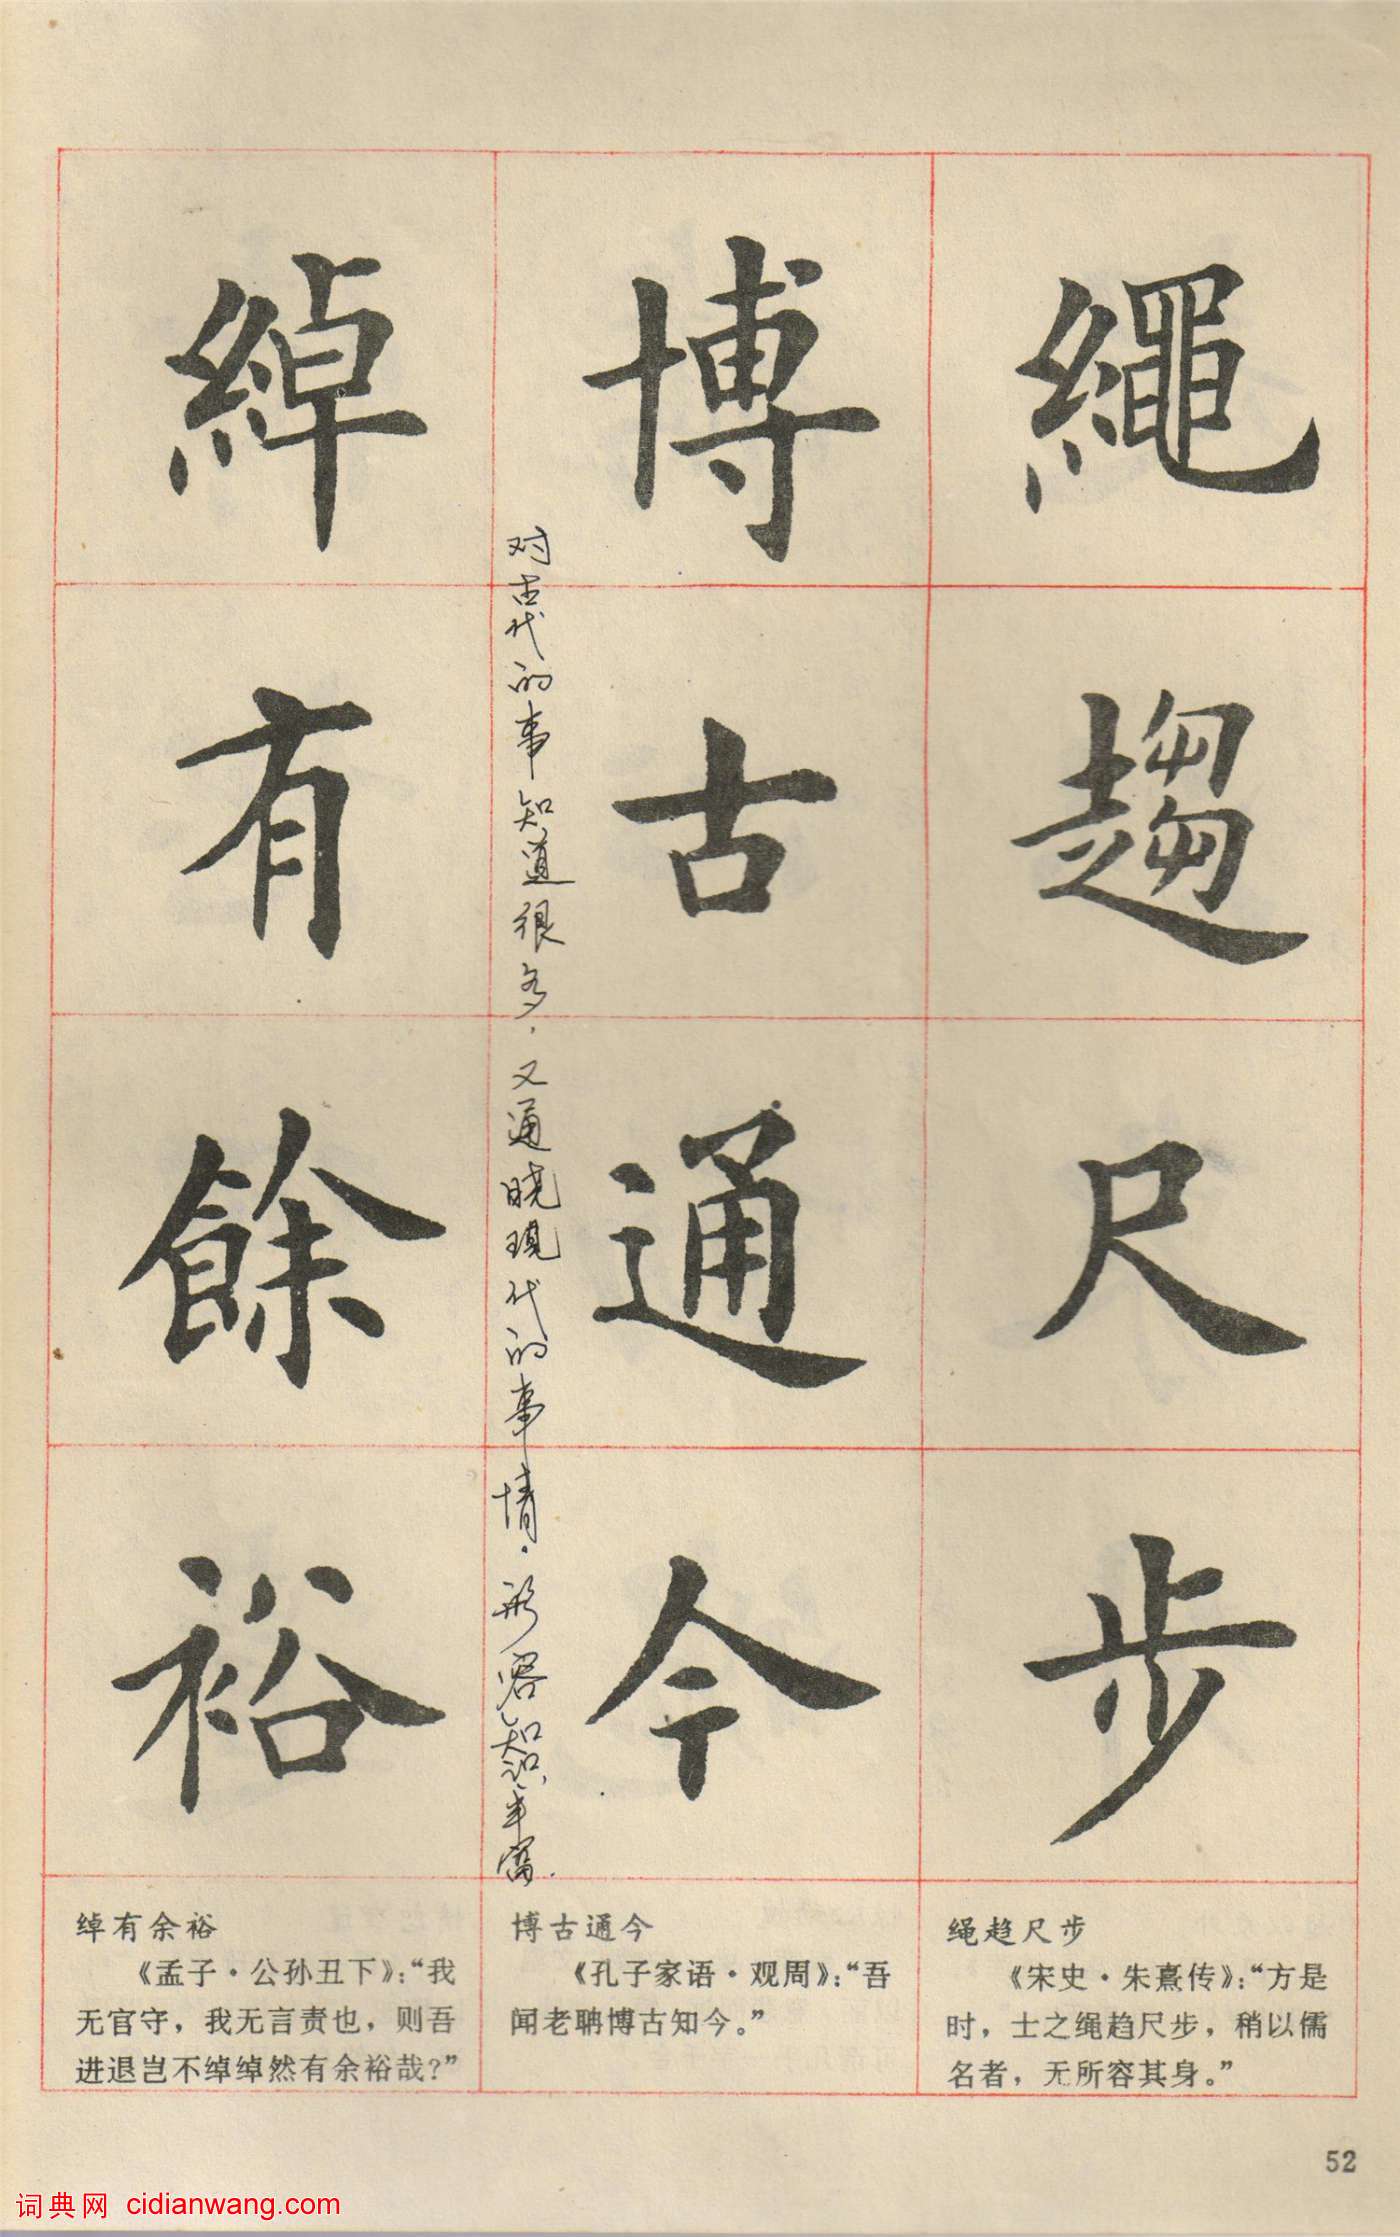 繩趨尺步
博古通今
对古代的事知道很多,又通晓现代的事情。形容知识丰富.
綽有餘裕
绳趋尺步
《宋史·朱熹传》:“方是
时，士之绳趋尺步，稍以儒
名者，无所容其身。”
博古通今
《孔子家语·观周》:“吾
闻老聃博古知今。”
绰有余裕
《孟子·公孙丑下》:“我
无官守，我无言责也，则吾
进退岂不绰绰然有余裕哉?”
52
词典网 cidianwang.com